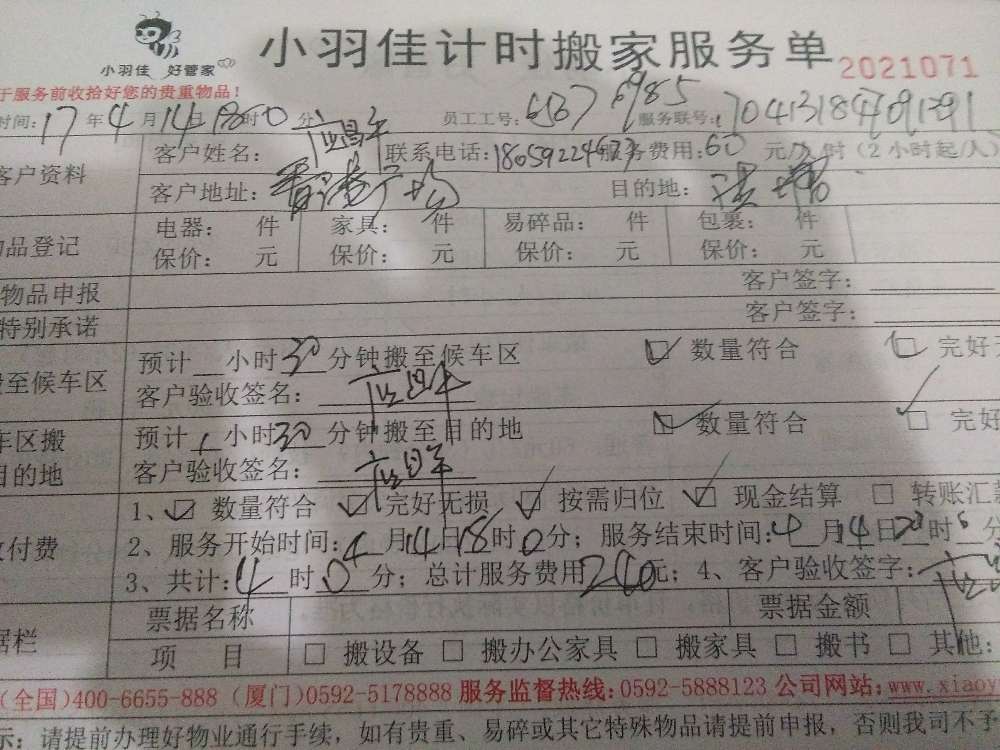 小羽佳 好管家
小羽佳计时搬家服务单
2021071
于服务前收拾好您的贵重物品！
时间：17年4月14日18时0分 员工工号：6137 6985 服务联号：
客户资料
客户姓名： 联系电话： 服务费用：60元/人/时（2小时起/人）
客户地址： 目的地：
物品登记
电器： 件 家具： 件 易碎品： 件 包裹： 件
保价： 元 保价： 元 保价： 元 保价： 元
物品申报 客户签字：
特别承诺 客户签字：
搬至候车区
预计 小时30分钟搬至候车区 数量符合 完好
客户验收签名：
车区搬
目的地
预计1小时30分钟搬至目的地 数量符合 完好
客户验收签名：
付费
1、数量符合 完好无损 按需归位 现金结算 转账汇款
2、服务开始时间：4月14日18时0分；服务结束时间：4月14日 时 分；
3、共计：4时0分；总计服务费用240元；4、客户验收签字：
据栏
票据名称 票据金额
项 目 搬设备 搬办公家具 搬家具 搬书 其他：
（全国）400-6655-888（厦门）0592-5178888 服务监督热线：0592-5888123 公司网站：www.xiaoy
示：请提前办理好物业通行手续，如有贵重、易碎或其它特殊物品请提前申报，否则我司不予